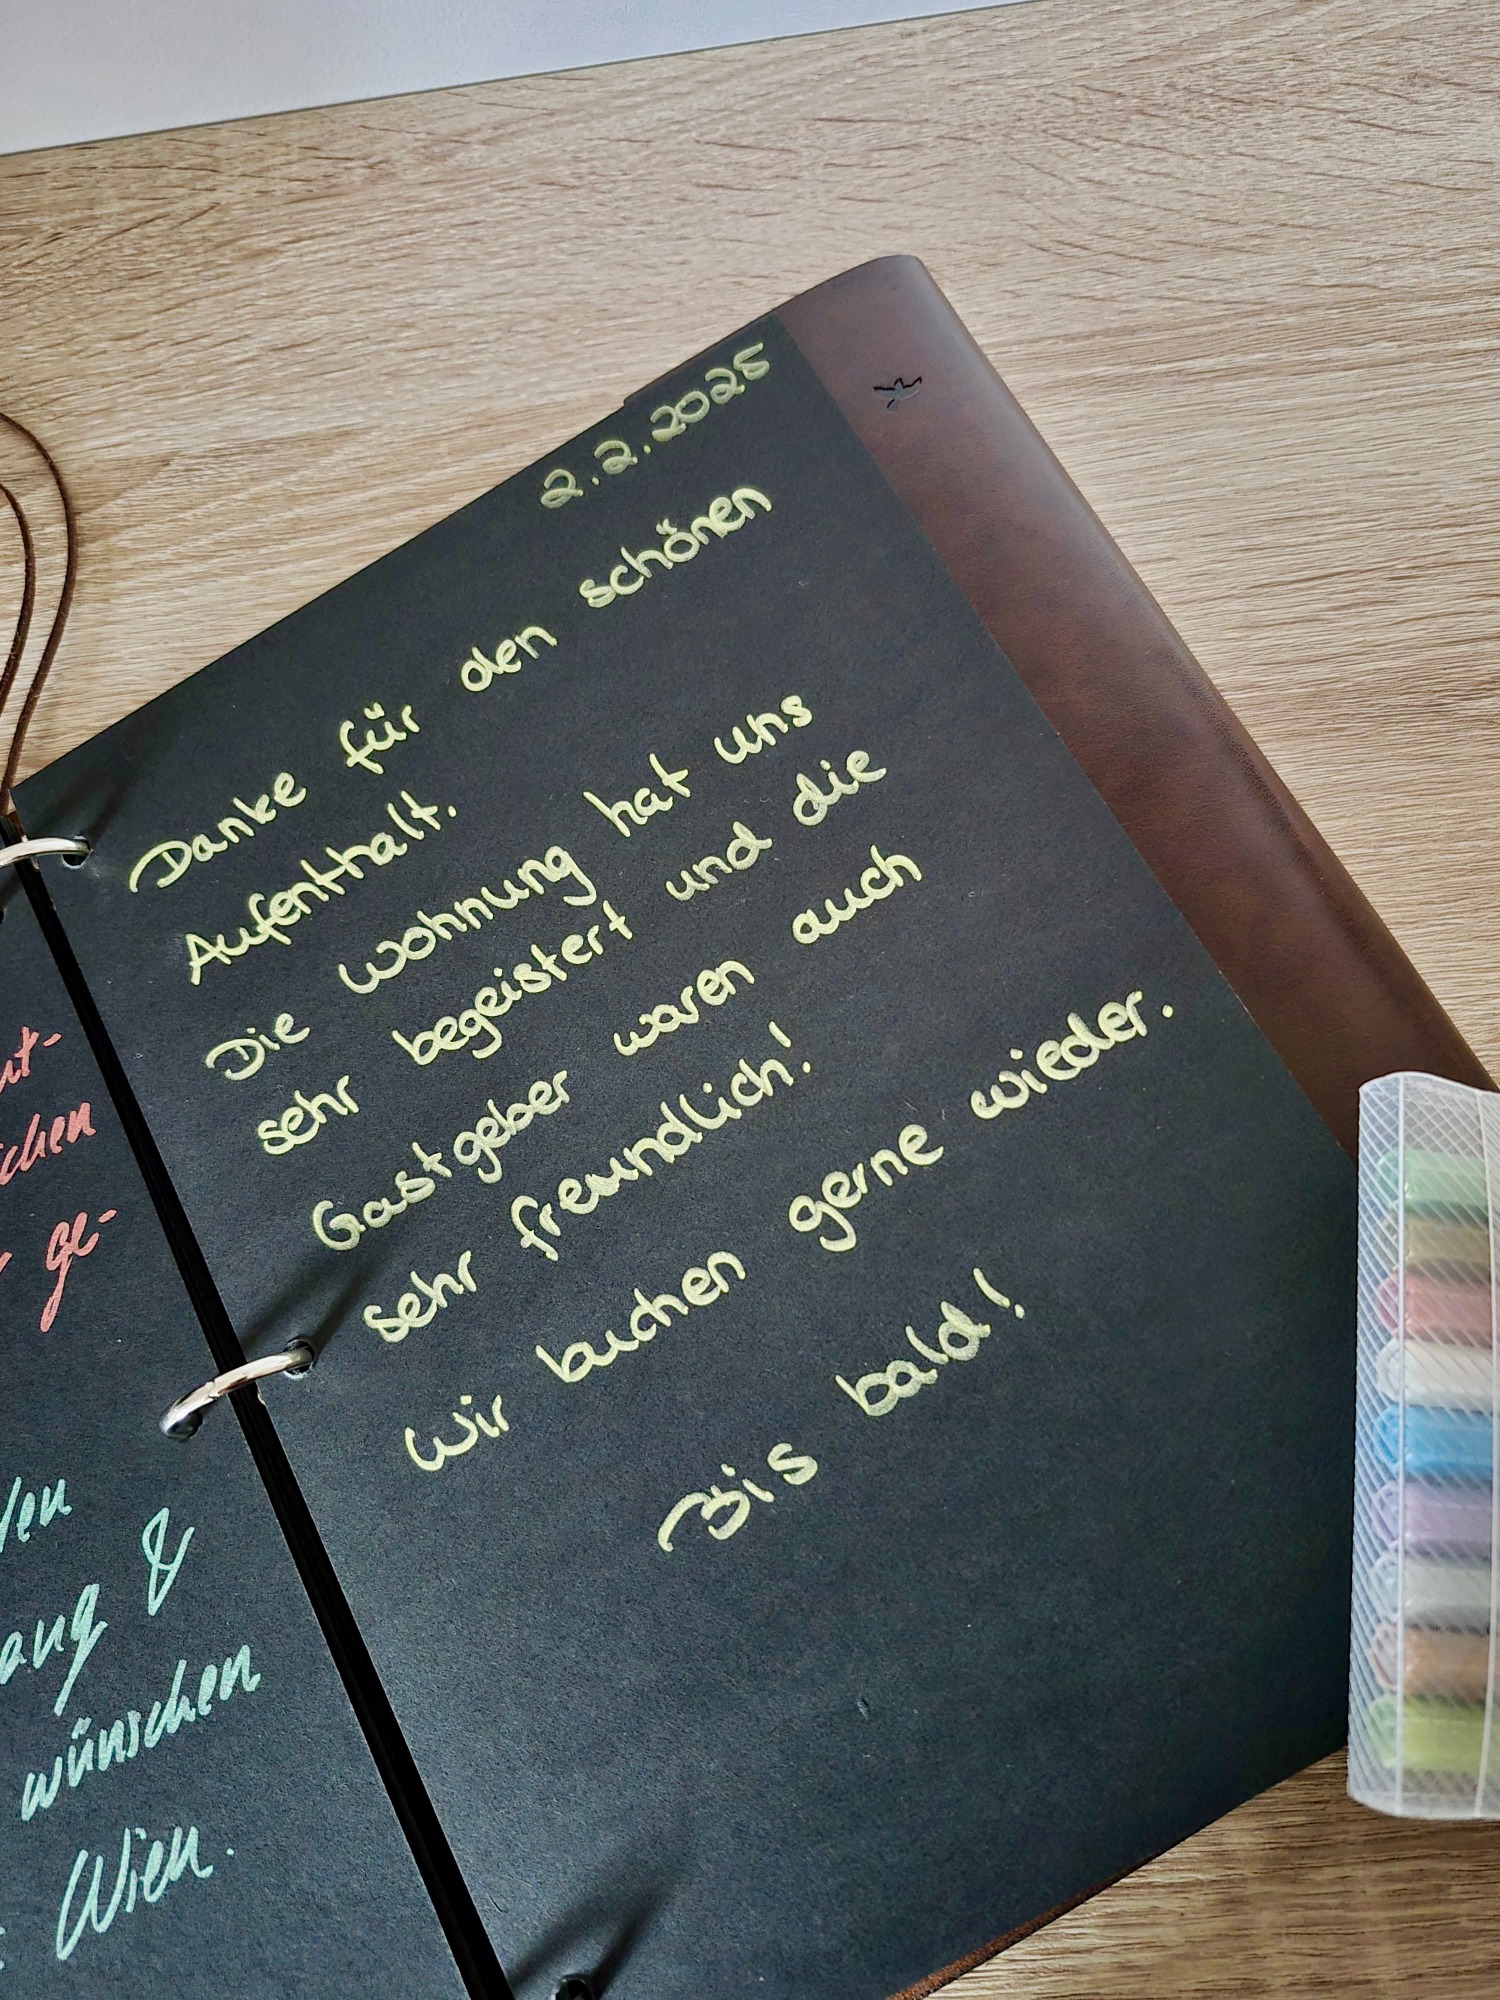 ut-
ichen
ge-
den
ang &
wünschen
Wien.
2.2.2025
Danke für den schönen
Aufenthalt.
Die Wohnung hat uns
sehr begeistert und die
Gastgeber waren auch
sehr freundlich!
Wir buchen gerne wieder.
Bis bald!